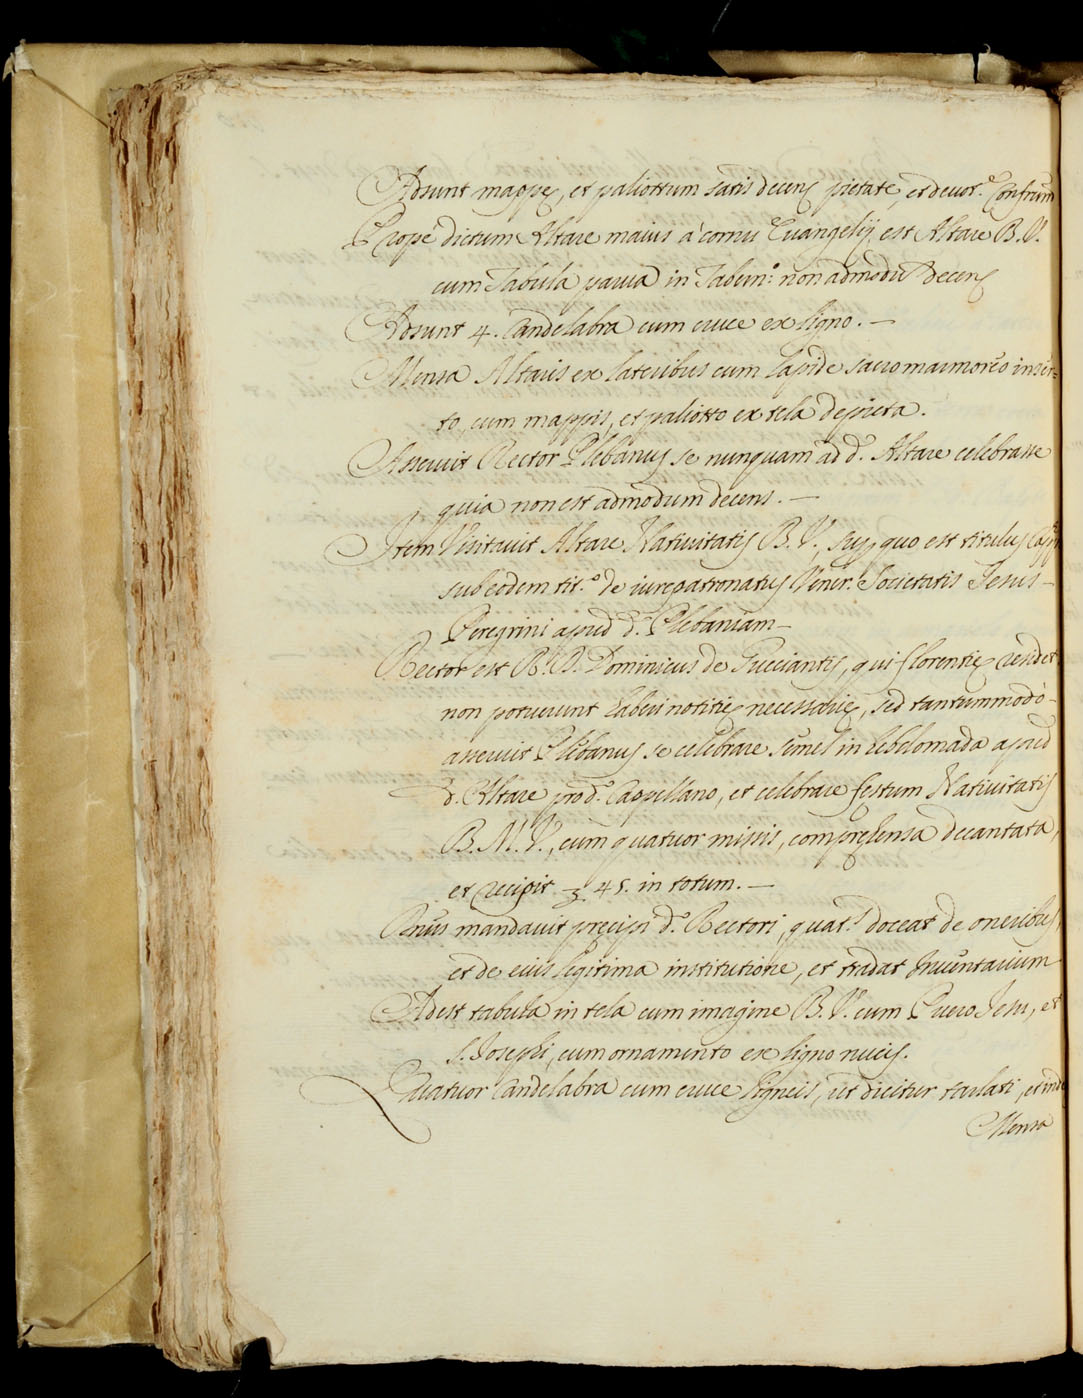 Adsunt mappę, et paliottum satis decens pietate, et devot.e Confrum
Prope dictum Altare maius à cornu Evangelij est Altare B. V.
cum Tabula parva in Tabern.o non admodu decens
Adsunt 4. Candelabra cum cruce ex ligno. —
Mensa Altaris ex lateribus cum lapide sacro marmoreo inser-
to, cum mappis, et paliotto ex tela depicta.
Asseruit Rector Plebanus se nunquam ad d.o Altare celebrasse
quia non est admodum decens. —
Item Visitavit Altare Nativitatis B. V., sup quo est titulus
sub eodem tit.o de iurepatronatus Vener. Societatis Jesus
Peregrini apud d. Plebaniam —
Rector est R. D. Dominicus de Gucciantis, qui Florentię residet
non potuerunt haberi notitię necessarię, sed tantummodò
asseruit Plebanus se celebrare semel in hebdomada apud
d. Altare pro d. Cappellano, et celebrare festum Nativitatis
B. M. V., cum quatuor missis, comprehensa decantata,
et recipit 45. in totum. —
Rmus mandavit pręcipi d.o Rectori, quat.s doceat de oneribus,
et de eius legitima institutione, et tradat Inventarium
Adest tabula in tela cum imagine B. V. cum Puero Jesu, et
S. Josephi, cum ornamento ex ligno nucis.
Quatuor Candelabra cum cruce ligneis, ut dicitur tarlati, et inde
Mensa